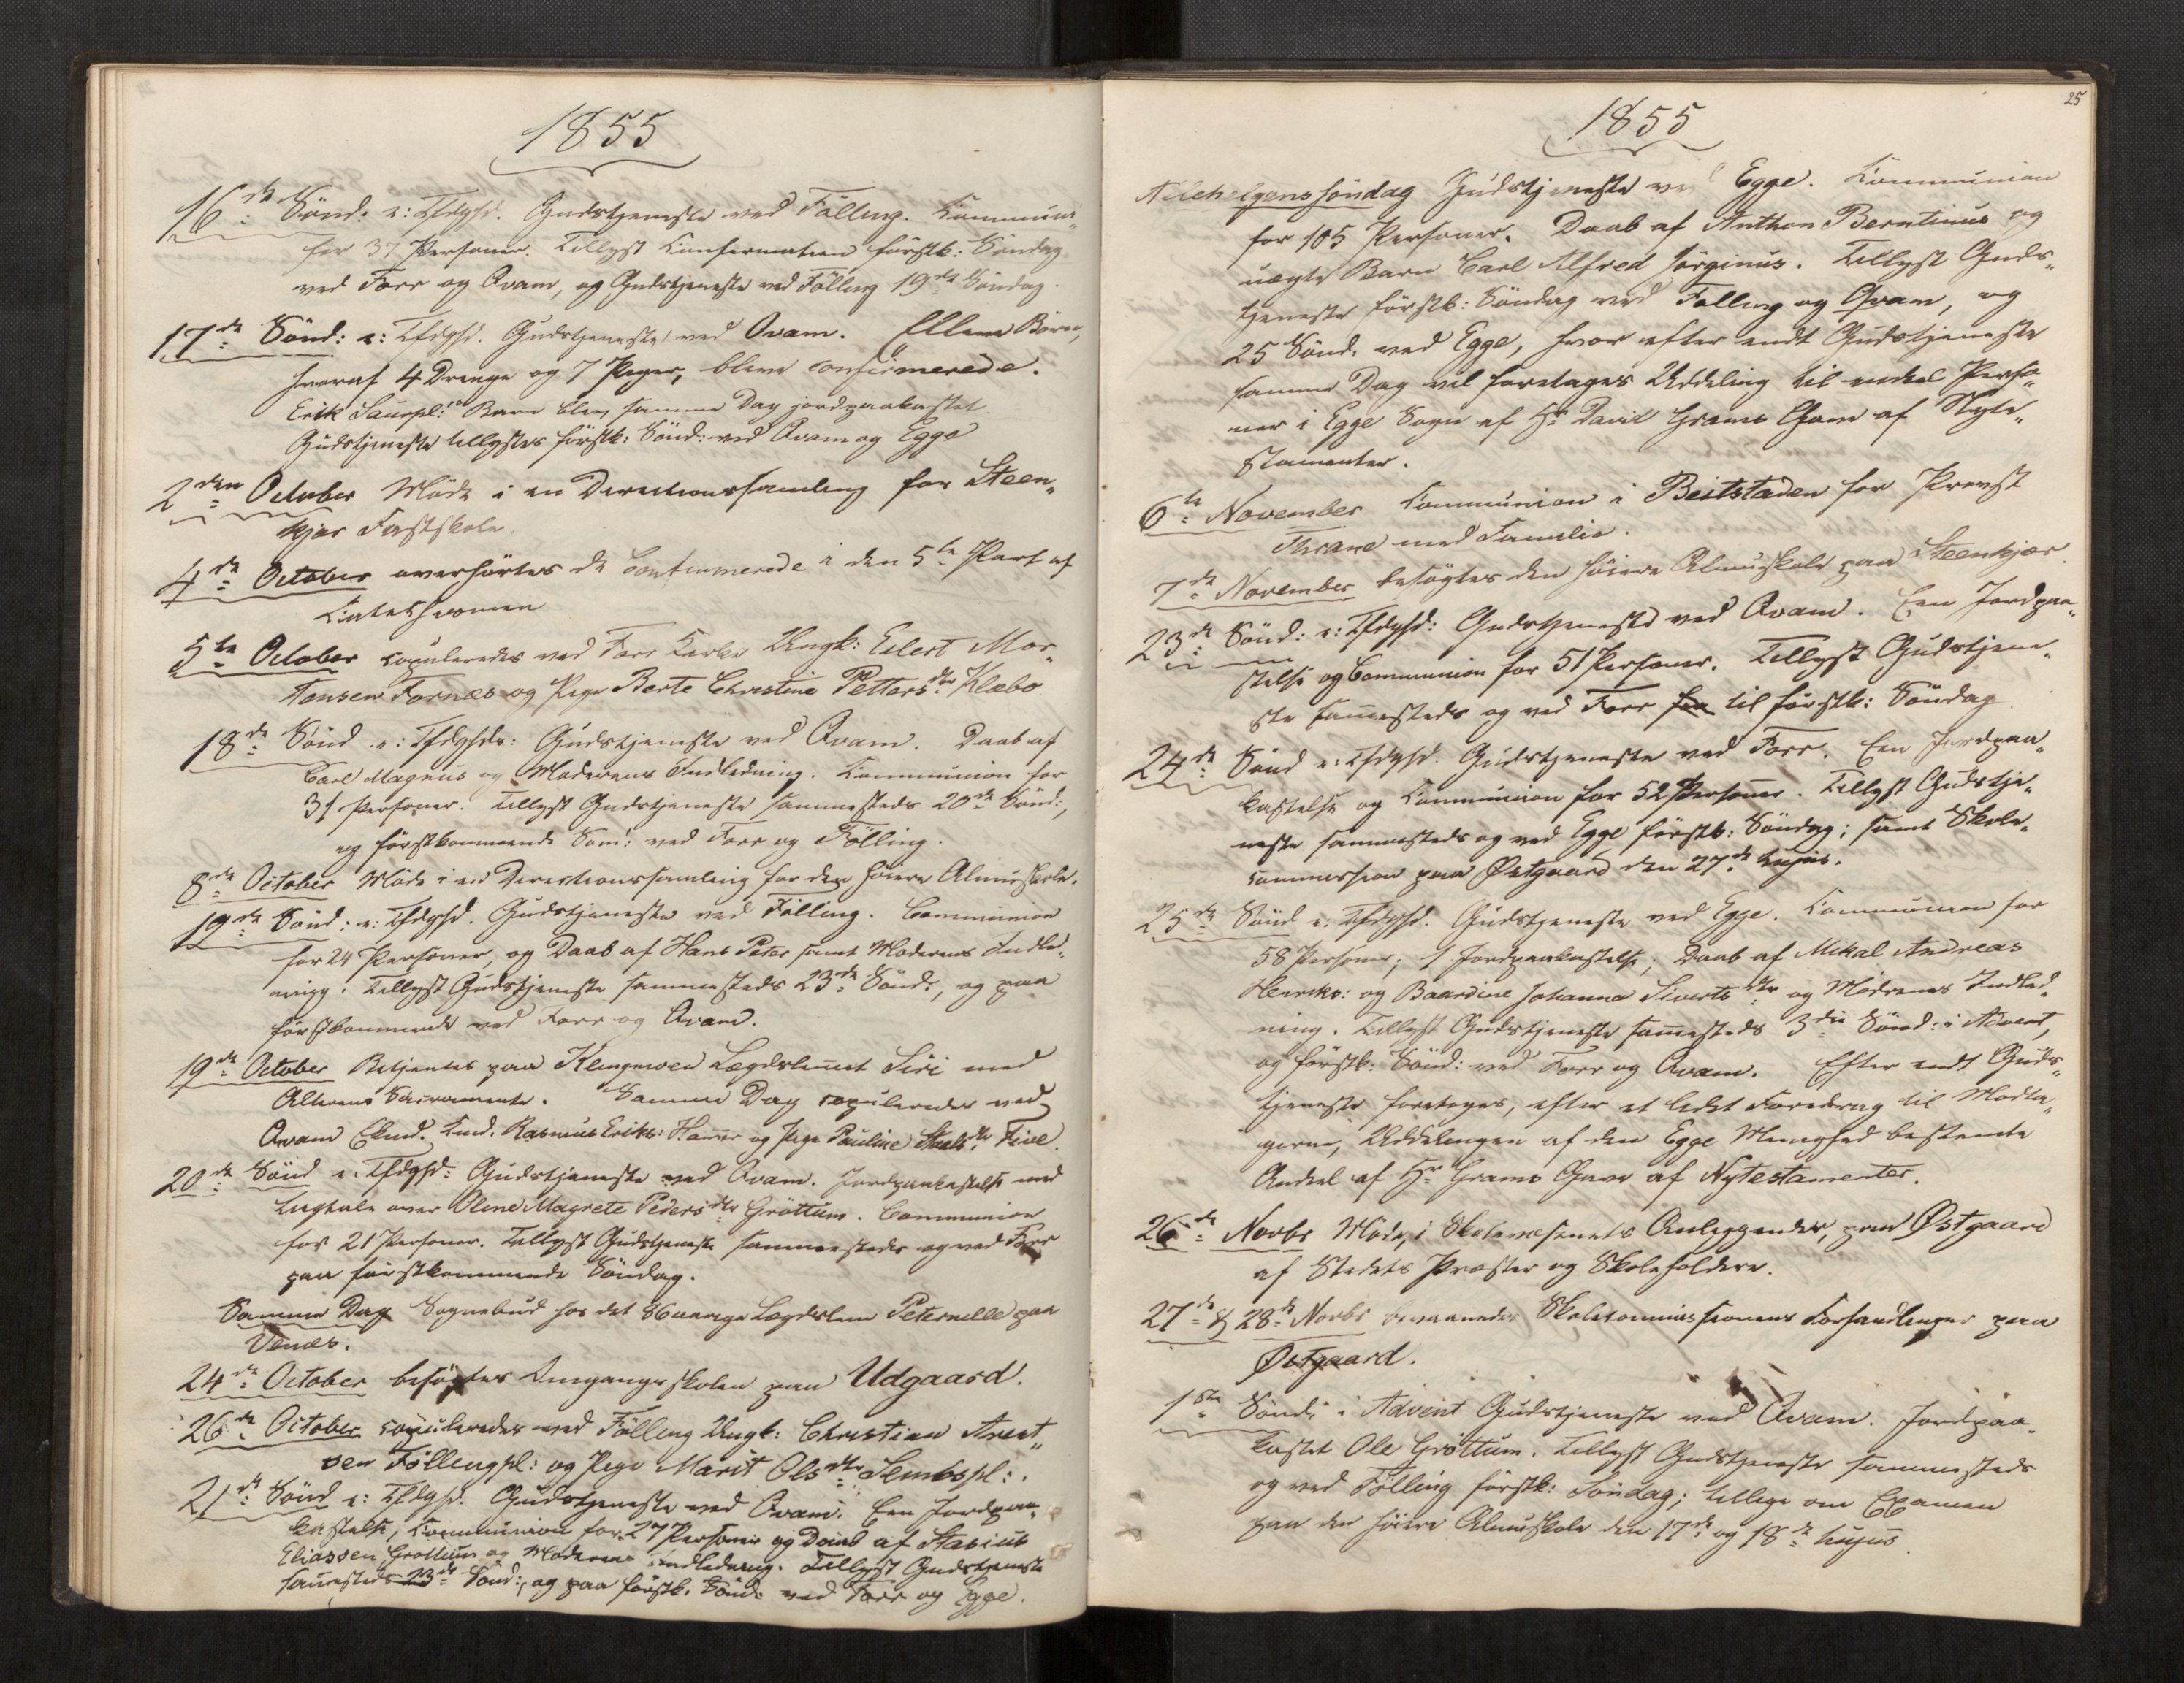 1855
16de Sönd: e: Tfdghd. Gudstjeneste ved Fölling. Communi„
for 37 Personer. Tillyst Confirmation förstk: Söndag
ved Forr og Qvam, og Gudstjeneste ved Fölling 19de Söndag.
17de Sönd: e: Tfdghd. Gudstjeneste ved Qvam. Elleve Börn,
hvoraf 4 Drenge og 7 Piger, bleve confirmerede.
Erik Barn blev samme Dag jordpaakastet.
Gudstjeneste tillystes förstk: Sönd: ved Qvam og Egge
2den October Möde i en Directionssamling for Steen„
kjær Fastskole.
4de October overhörtes de Confirmerede i den 5te Part af
Katechismen
5te October copuleredes ved Forr Kirke Ungk: Eilert Mor„
tensen Fornæs og Pige Berte Christine Pettersdtr Klæbo
18de Sönd e: Tfdghds: Gudstjeneste ved Qvam. Daab af
Carl Magnus og Moderens Indledning. Communion for
31 Personer. Tillyst Gudstjeneste sammesteds 20de Sönd:,
og förstkommende Sönd: ved Forr og Fölling.
8de October Möde i en Directionssamling for den höiere Almueskole.
19de Sönd: e: Tfdghd. Gudstjeneste ved Fölling. Communion
for 24 Personer, og Daab af Hans Peter samt Moderens Indled„
ning. Tillyst Gudstjeneste sammesteds 23de Sönd:, og paa
förstkommende ved Forr og Qvam.
19de October Betjentes paa Klingewen Lægdslemet Siri med
Alterens Sacramente. Samme Dag copuleredes ved
Qvam Rasmus Eriks: Hammer og Pige Pauline
20de Sönd e: Tfdghd: Gudstjeneste ved Qvam. Jordpaakastelse med
Ligtale over Oline Magrete Pedersdtr Gröttum. Communion
for 21 Personer. Tillyst Gudstjeneste sammesteds og ved Forr
paa förstkommende Söndag.
Samme Dag Sognebud hos det 86 aarige Lægdslem Peternelle paa
Venæs.
24de October besögtes Omgangsskolen paa Udgaard.
26de October copuleredes ved Fölling Ungk: Christian Arent„
sen Föllingpl: og Pige Marit Olsdtr Sembspl:.
21de Sönd e: Tfdghd. Gudstjeneste ved Qvam. Een Jordpaa„
kastelse, Communion for 27 Personer og Daab af
Eliassen Grøttum og Moderens Indledning. Tillyst Gudstjeneste
samesteds 23de Sönd:, og paa förstk: Sönd: ved Forr og Egge.
25
1855
Allehelgenssöndag Gudstjeneste ved Egge. Communion
for 105 Personer. Daab af Anthon Berntinus og
uægte Barn Carl Alfred Jörginus. Tillyst Guds„
tjeneste förstk: Söndag ved Fölling og Qvam, og
25 Sönd. ved Egge, hvor efter endt Gudstjeneste
samme Dag vil foretages Uddeling til endeel Perso„
ner i Egge Sogn af Hr David Grams Gave af Nyte„
stamenter.
6te November Communion i Beitstaden for Provst
Thrane med Familie.
7de November besögtes den höiere Almueskole paa Steenkjær
23de Sönd: e: Tfdghd: Gudstjeneste ved Qvam. Een Jordpaa„
stelse og Communion for 51 Personer. Tillyst Gudstjene„
ste samesteds og ved Forr til förstk: Söndag
24de Sönd e: Tfdghd. Gudstjeneste ved Forr. Een Jordpaa„
kastelse og Communion for 52 Personer. Tillyst Gudstje„
neste sammesteds og ved Egge förstk: Söndag; samt Skole„
commission paa Østgaard den 27de hujus.
25de Sönd e: Tfdghd. Gudstjeneste ved Egge. Communion for
58 Personer; 1 Jordpaakastelse; Daab af Mikal Andreas
Henriks: og Baardine Johanna Sivertsdtr og Mødrenes Indled„
ning. Tillyst Gudstjeneste samesteds 3die Sönd: i Advent,
og förstk: Sönd: ved Forr og Qvam. Efter endt Guds„
tjeneste foretoges, efter et lidet Foredrag til Modta„
gerne, Uddelingen af den Egge Menighed bestemte
Andeel af Hr Grams Gave af Nytestamenter.
26de Novbr Möde, i Skolevæsenets Anliggender, paa Østgaard
af Stedets Præster og Skoleholdere.
27de & 28de Novbr Skolecommissionens Forhandlinger paa
Østgaard.
1ste Sönd: i Advent Gudstjeneste ved Qvam. Jordpaa„
kastet Ole Gröttum. Tillyst Gudstjeneste sammesteds
og ved Fölling förstk: Söndag; tillige om Examen
paa den höiere Almueskole den 17de og 18de hujus.